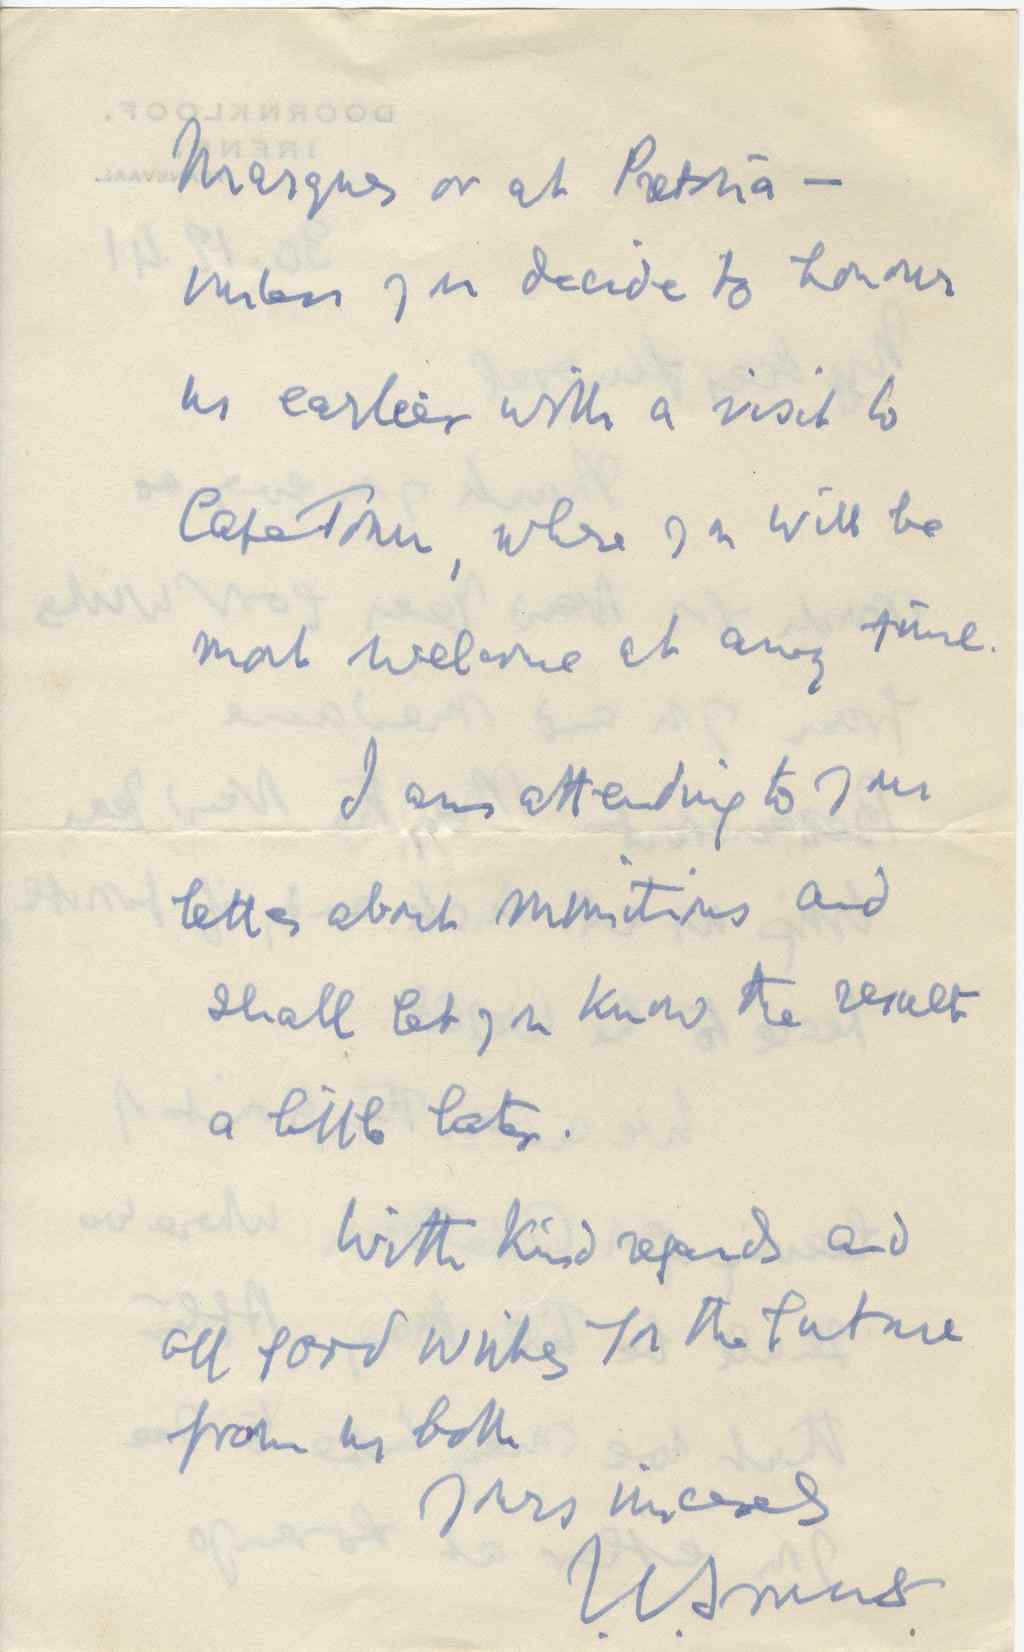 Marques or at Pretoria —
unless you decide to honour
us earlier with a visit to
Cape Town, where you will be
most welcome at any time.
I am attending to your
letter about munitions and
shall let you know the result
a little later.
With kind regards and
all good wishes for the future
from us both
Yours sincerely
J.C. Smuts.
DOORNKLOOF,
IRENE,
TRANSVAAL.
30.12.41